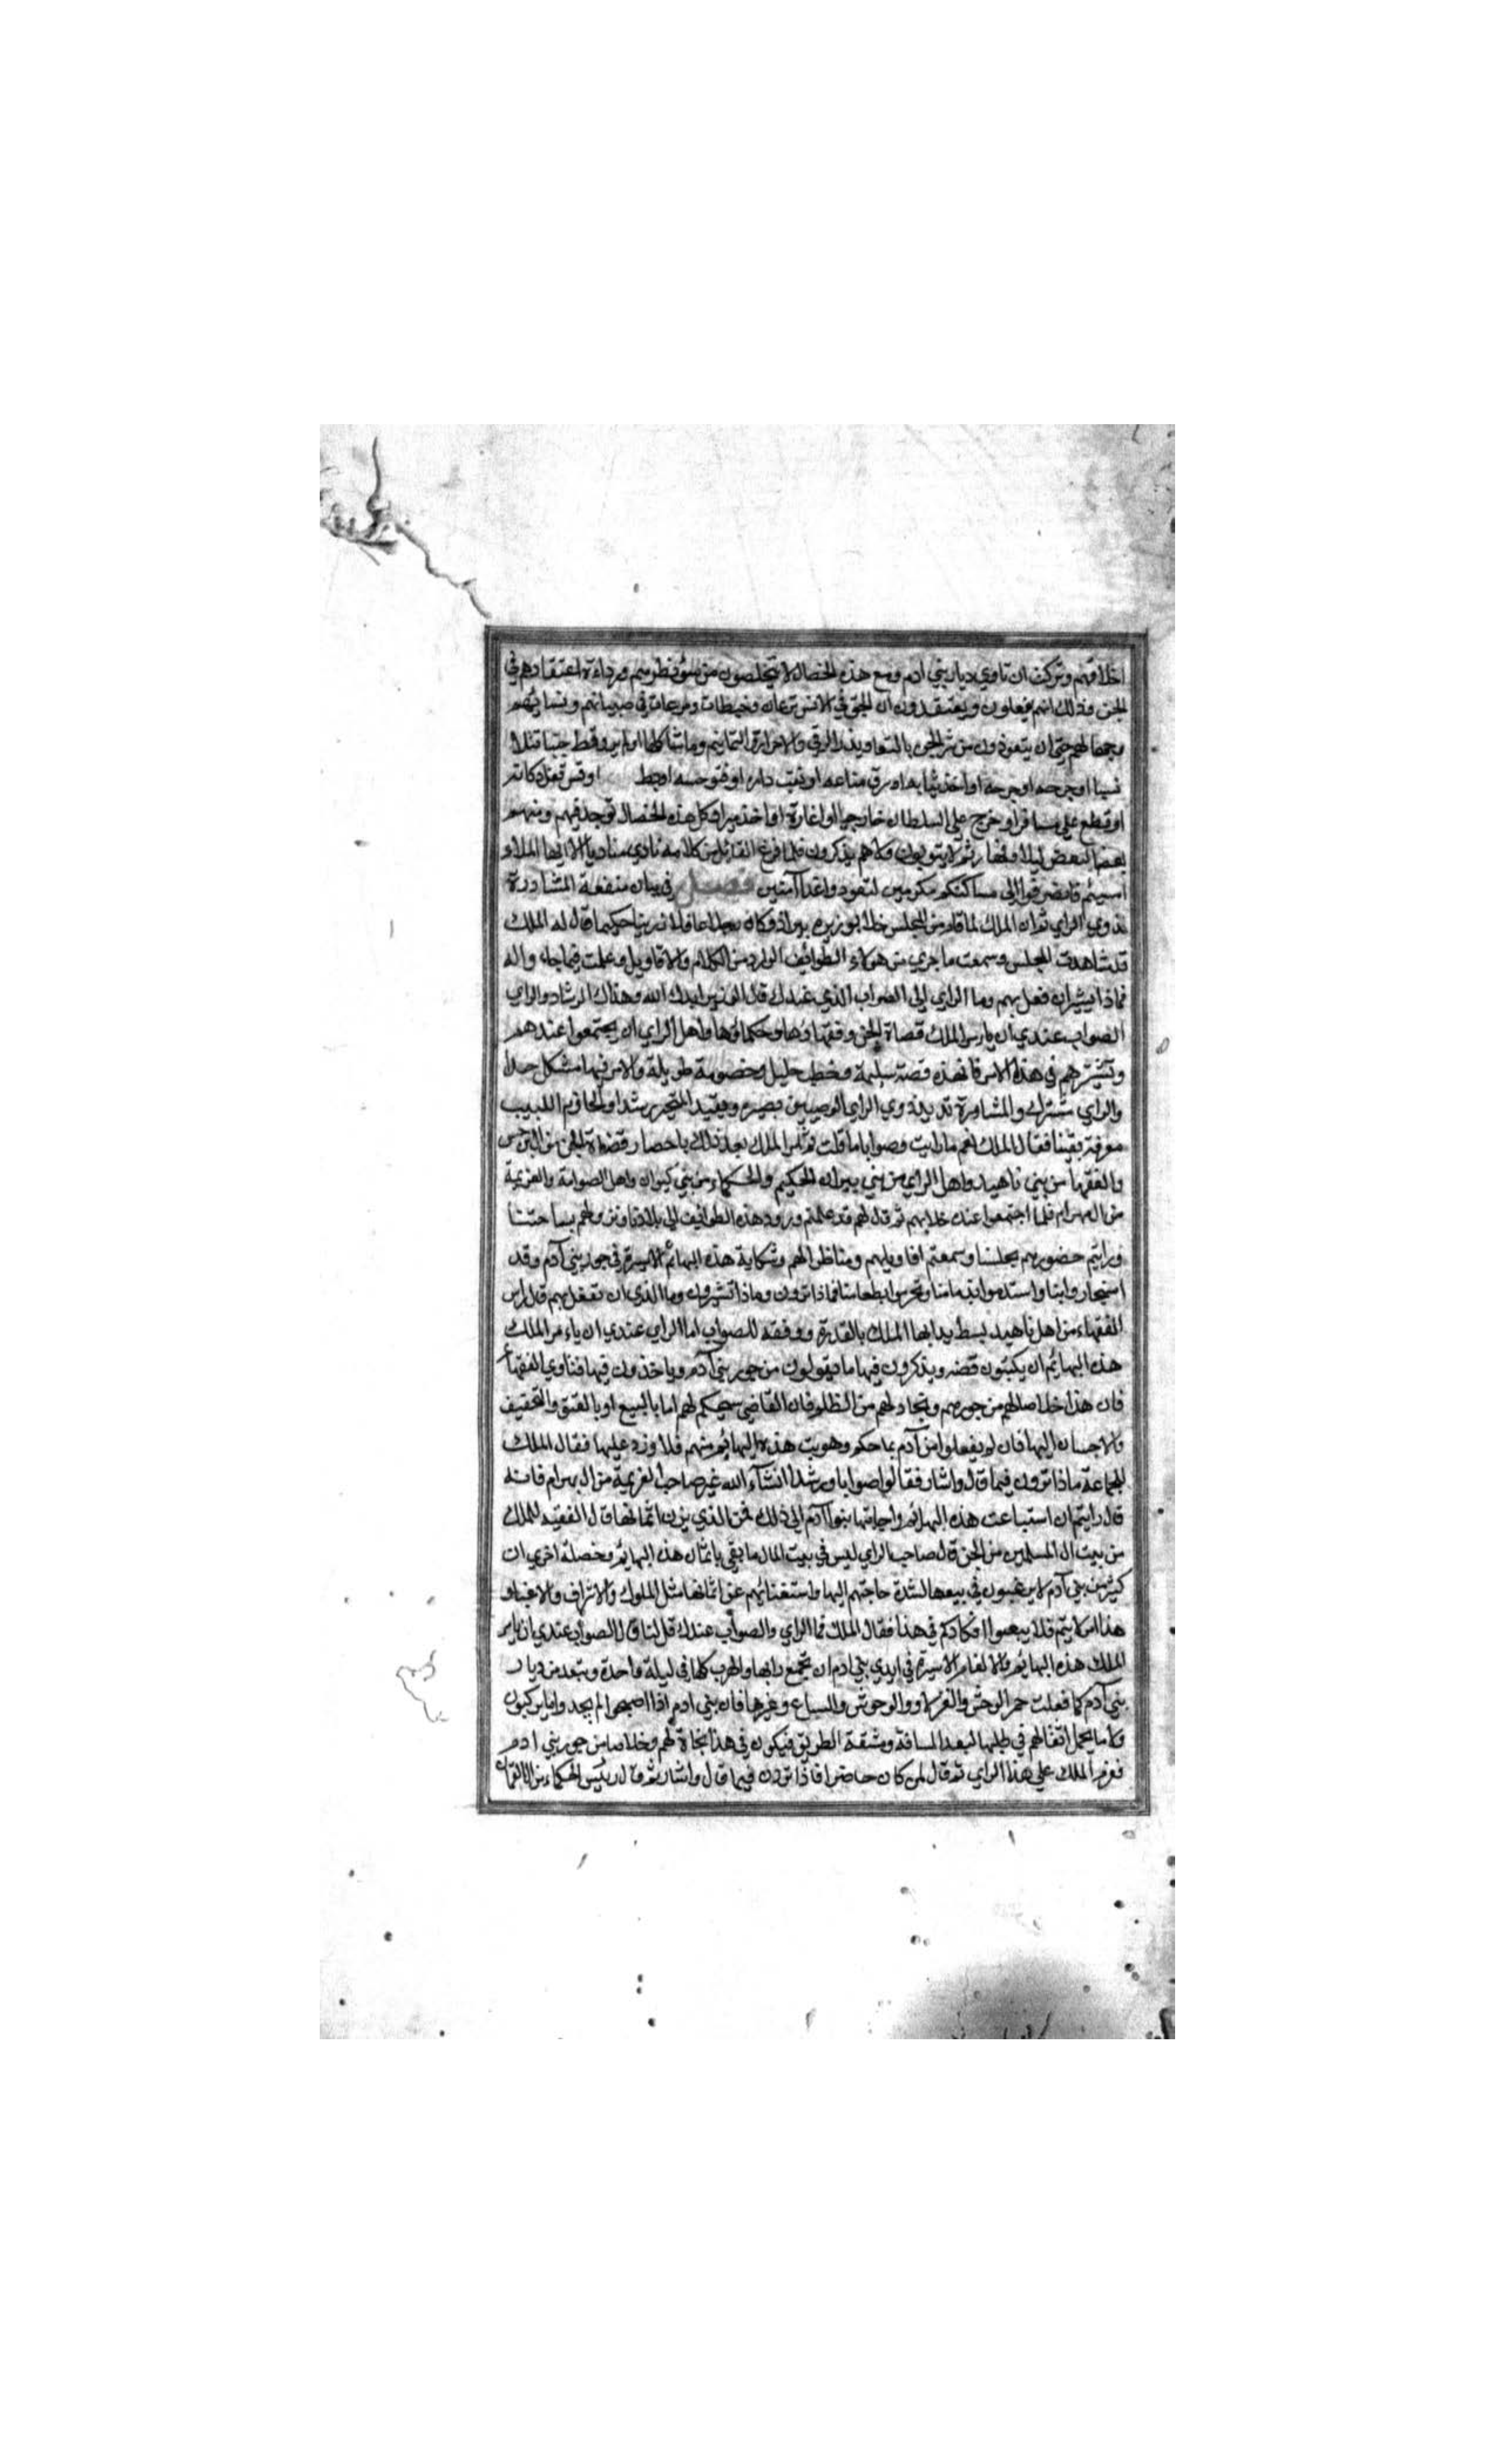 اخلاقهم وتركت ان تاوي ديار بني ادم ومع هذه الخصال لا يتخلصون من سوء نظرهم ورداءة اعتقادهم في
الجن وذلك انهم يفعلون ويعتقدون ان للجن في الانس نزعات وخبطات ونزعات في صبيانهم ونسائهم
وجهالهم حتى ان يتعوذون من شر الجن بالتعاويذ والرقي والاحراز والتمايم وما شاكلها ولم ير قط جنيا قتل
نسيا او جرحه او اخذ ثيابه او سرق متاعه او نقب داره او فتق جيبه او بط او قس قفل دكانه
او قطع علي مسافر او خرج علي السلطان خارجيا او اغارة او اخذ ميرا وكل هذه الخصال توجد فيهم ومنهم
بعضا لبعض ليلا ونهارا ثم لا يتوبون ولا هم يذكرون فلما فرغ القائل من كلامه نادي مناديا الا ايها الملاء
امسيتم فانصرفوا الي مساكنكم مكرمين لتعودوا غدا آمنين فصل في بيان منفعة المشاورة
لذوي الراي ثم ان الملك لما قام من المجلس خلا بوزيره بيراز وكان رجلا عاقلا رزينا حكيما قال له الملك
قد شاهدت المجلس وسمعت ما جري من هؤلاء الطوائف الوارد من الكلام والاقاويل وعلمت فيما جاء واله
فماذا تشير ان نفعل بهم وما الراي الي الصواب الذي عندك قال الوزير ايدك الله وهداك الرشاد والراي
الصواب عندي ان يامر الملك قضاة الجن وفقهاؤها وحكماؤها واهل الراي ان يجتمعوا عندهم
وتشيرهم في هذا الامر فان هذه قصة سليمة وخطب جليل وخصومة طويلة والامر فيها مشكل جدا
والراي مشترك والمشاورة تزيد ذوي الراي الرصين بصيرة ويفيد المتحير رشدا والحازم اللبيب
معرفة يقينا فقال الملك نعم ما رايت وصوابا ما قلت ثم امر الملك بعد ذلك باحضار قضاة الجن من ال برجيس
والفقها من بني ناهيد واهل الراي من بني بيران الحكيم والحكماء من بني كيوان واهل الصوامة والعزيمة
من ال بهرام فلما اجتمعوا عنده خلا بهم ثم قال لهم قد علمتم ورود هذه الطوائف الي بلادنا ونزولهم بساحتنا
ورايتم حضورهم مجلسنا وسمعتم اقاويلهم ومناظراتهم وشكاية هذه البهائم الاسيرة في جور بني آدم وقد
استجاروا بنا واستذموا بذمامنا وتحرموا بطعامنا فماذا ترون وماذا تشيرون وما الذي ان تفعل بهم قال راس
الفقهاء من اهل ناهيد بسط يد ايها الملك بالقدرة ووفقه للصواب اما الراي عندي ان ياءمر الملك
هذه البهائم ان يكتبون قصه ويذكرون فيها ما ديقولون من جور بني آدم وياخذون فيها فتاوي الفقهاء
فان هذا خلاصا لهم من جورهم ونجاة لهم من الظلم فان القاضي سيحكم لهم اما بالبيع او بالعتق والتخفيف
والاحسان اليها فان لم يفعلوا بني آدم بما حكم وهربت هذه البهائم منهم فلا وزر عليها فقال الملك
للجماعة ماذا ترون فيما قال واشار فقالوا صوابا ورشدا انشآء الله غير صاحب العزيمة من ال بهرام فانه
قال رايتم ان استباعت هذه البهائم واجابتها بنوا آدم الي ذلك فمن الذي يزن اثمانها قال الفقيه الملك
من بيت ال المسلمين من الجن قال صاحب الراي ليس في بيت المال ما يفي باثمان هذه البهائم وخصلة اخري ان
كثير من بني آدم لا يرغبون في بيعها لشدة حاجتهم اليها واستغنائهم عن اثمانها مثل الملوك والاشراف والاغنياء
هذا امر لا يتم فلا تتعبوا افكاركم في هذا فقال الملك فما الراي والصواب عندك قل لنا قال الصواب عندي ان يامر
الملك هذه البهائم والانعام الاسيرة في ايدي بني ادم ان تجمع رايها وتهرب كلها في ليلة واحدة وتبعد من ديار
بني آدم كما فعلت حمر الوحش والغزلان والوحوش والسباع وغيرها فان بني ادم اذا اصبحوا لم يجدوا ما يركبون
ولا ما يحمل اثقالهم في طلبها لبعد المسافة ومشقة الطريق فيكون في هذا نجاة لهم وخلاصا من جور بني ادم
فعزم الملك علي هذا الراي ثم قال لمن كان حاضرا فاذا ترون فيما قال واشار ثم قال رئيس الحكماء من ال لقمان